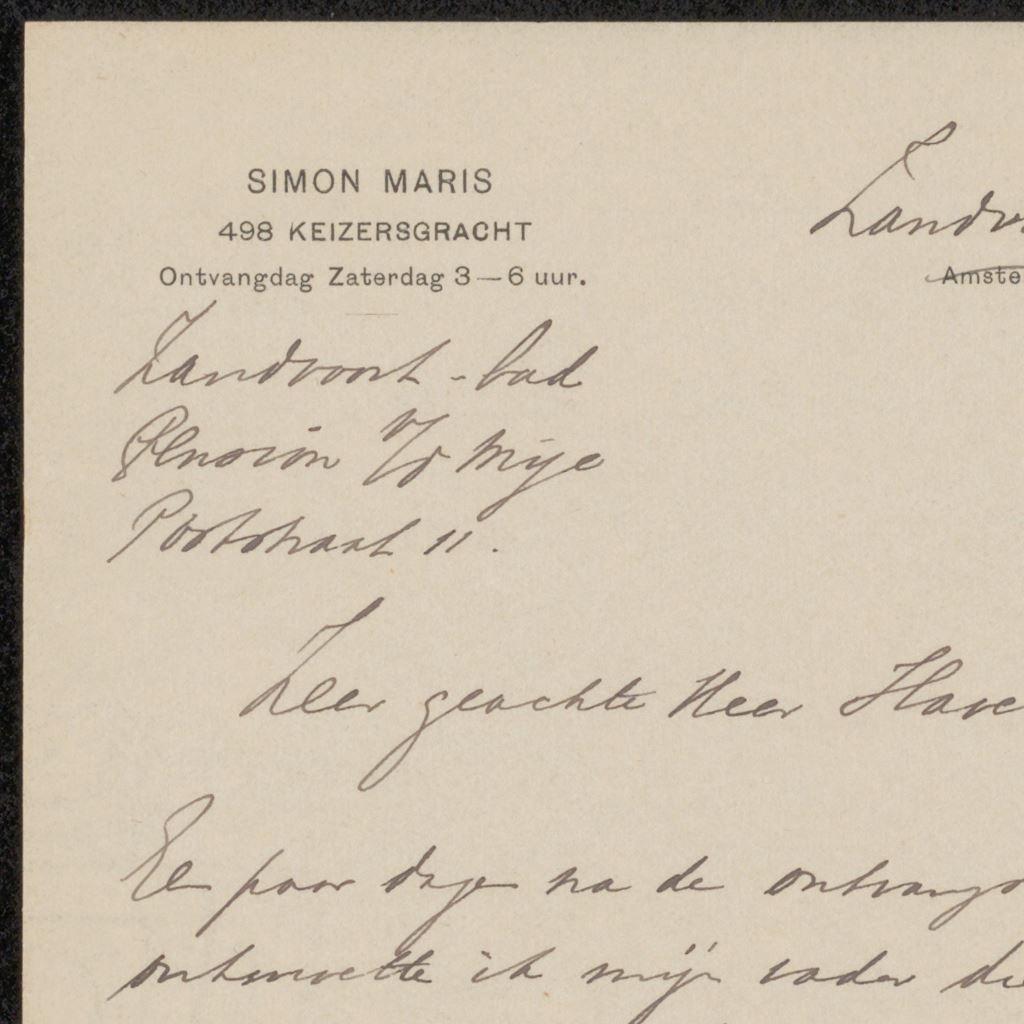 SIMON MARIS
498 KEIZERSGRACHT
Ontvangdag Zaterdag 3—6 uur.
Zandv
Amste
Zandvoort - bad
Pension v/d Mije
Poststraat 11.
Zeer geachte Heer Have
Een paar dagen na de ontvangs
ontmoette ik mijn vader di